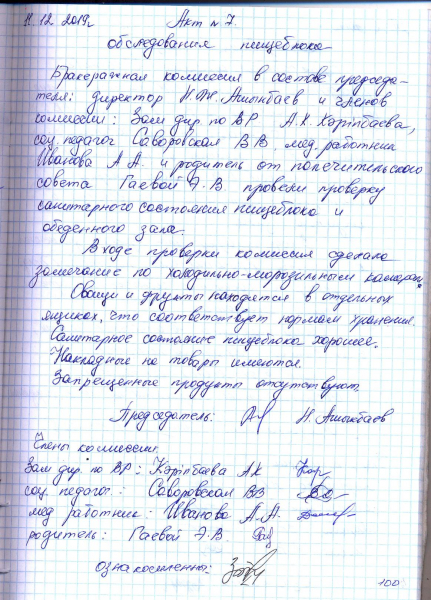 11.12.2019г Акт №7.
обследования пищеблока
Бракеражная комиссия в составе председа-
теля: директор Н.Ж. Ашыкбаев и членов
комиссии: Зам дир по ВР А.К. Кәріпбаева,
соц. педагог Саворовская В В, мед. работник
Иванова А.А. и родитель от попечительского
совета Гаевой Э.В. провели проверку
санитарного состояния пищеблока и
обеденного зала.
В ходе проверки комиссия сделала
замечание по холодильно-морозильным камерам.
Овощи и фрукты находятся в отдельных
ящиках, что соответствует нормам хранения.
Санитарное состояние пищеблока хорошее.
Накладные на товары имеются.
Запрещенные продукты отсутствуют.
Председатель: Н. Ашыкбаев
Члены комиссии:
Зам дир по ВР: Кәріпбаева АК
соц. педагог: Саворовская ВВ
мед работник: Иванова А.А.
родитель: Гаевой Э.В.
ознакомлены:
100